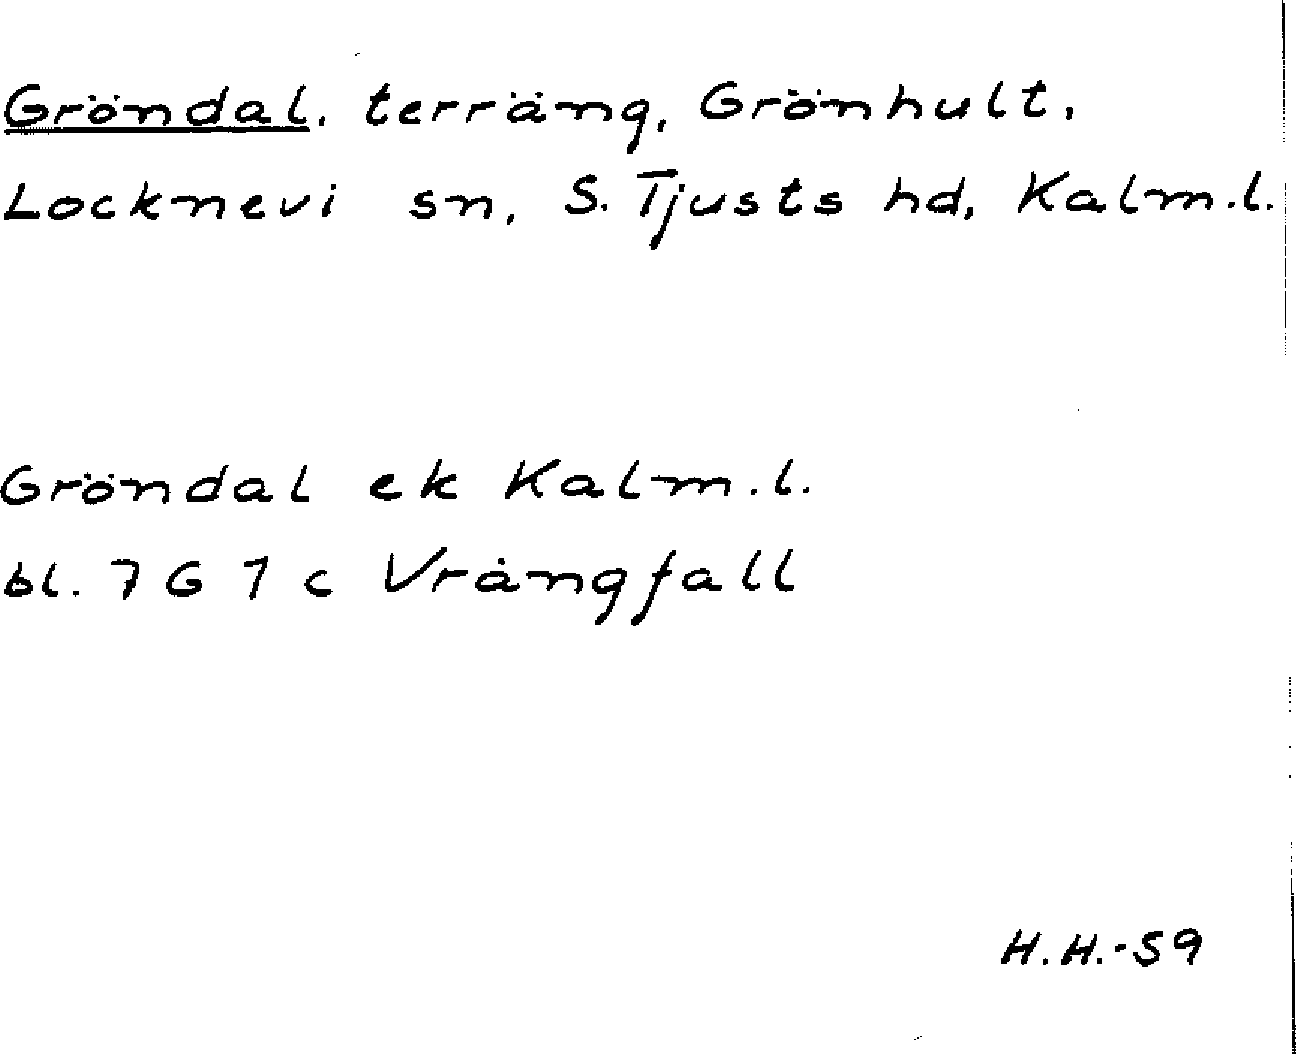 Gröndal, terräng, Grönhult,
Locknevi sn, S. Tjusts hd, Kalm.l.
Gröndal ek Kalm.l.
bl. 7 G 1 c Vrångfall
H.H.-59